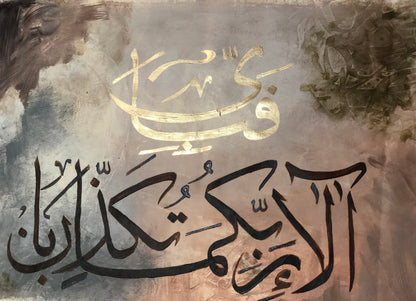 فبأي
آلاء ربكما تكذبان